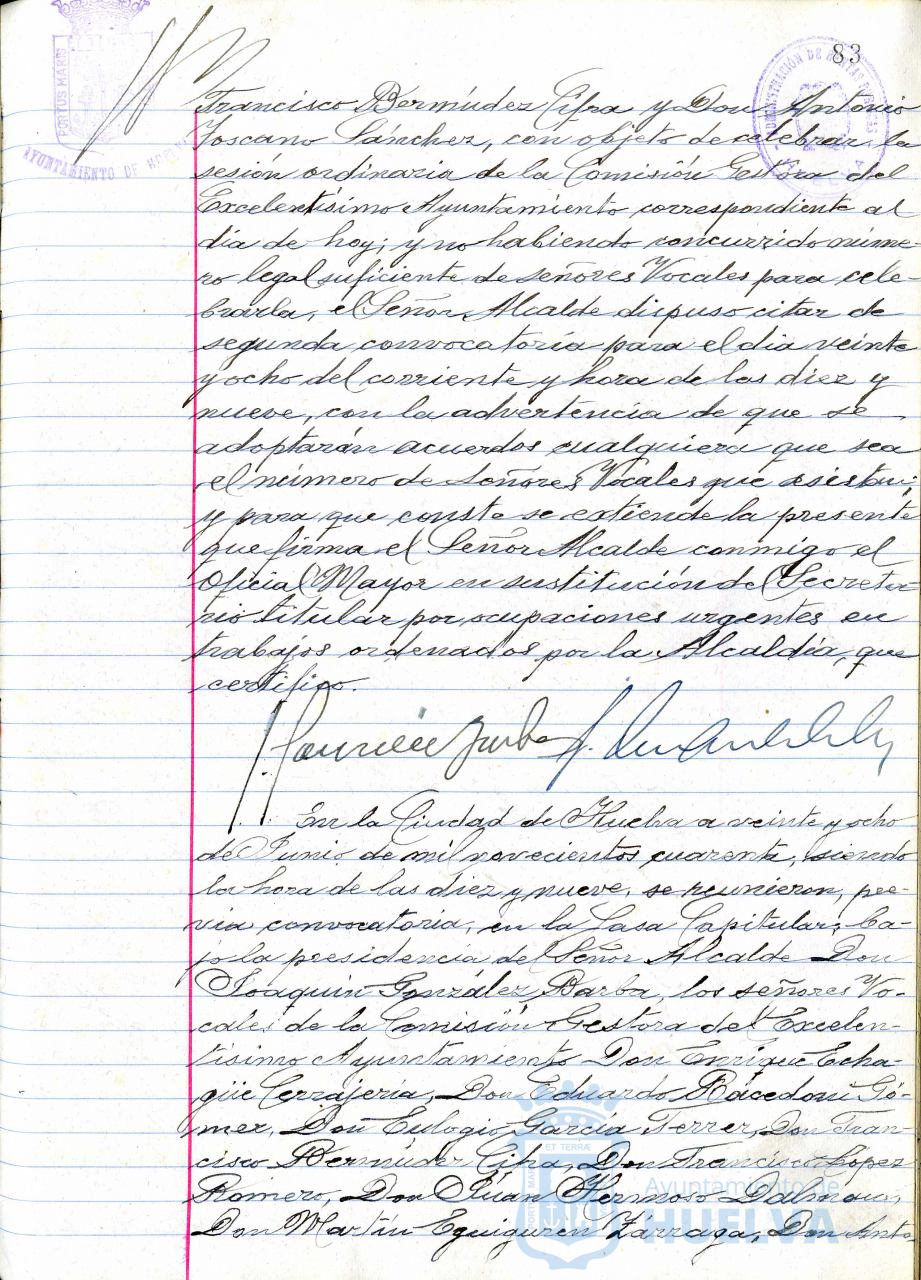 83
PORTUS MARIS
AYUNTAMIENTO DE HUELVA
ADMINISTRACIÓN DE RENTAS
Francisco Bermúdez Cifra y Don Antonio
Toscano Sánchez, con objeto de celebrar la
sesión ordinaria de la Comisión Gestora del
Excelentísimo Ayuntamiento correspondiente al
día de hoy; y no habiendo concurrido núme-
ro legal suficiente de señores Vocales para cele-
brarla, el Señor Alcalde dispuso citar de
segunda convocatoria para el día veinte
y ocho del corriente y hora de las diez y
nueve, con la advertencia de que se
adoptarán acuerdos cualquiera que sea
el número de Señores Vocales que asistan;
y para que conste se extiende la presente
que firma el Señor Alcalde conmigo el
Oficial Mayor en sustitución del Secreta-
rio titular por ocupaciones urgentes en
trabajos ordenados por la Alcaldía, que
certifico.
En la Ciudad de Huelva a veinte y ocho
de Junio de mil novecientos cuarenta, siendo
la hora de las diez y nueve, se reunieron, pre-
via convocatoria, en la Casa Capitular, ba-
jo la presidencia del Señor Alcalde Don
Joaquín González Barba, los señores Vo-
cales de la Comisión Gestora del Excelen-
tísimo Ayuntamiento Don Enrique Echa-
güe Cerrajería, Don Eduardo Rácedoni Gó-
mez, Don Eulogio García Ferrer, Don Fran-
cisco Bermúdez Cifra, Don Francisco López
Romero, Don Juan Hermoso Dalmau,
Don Martín Eguiguren Zarraga, Don Anto-
ET TERRAE
Ayuntamiento de
HUELVA